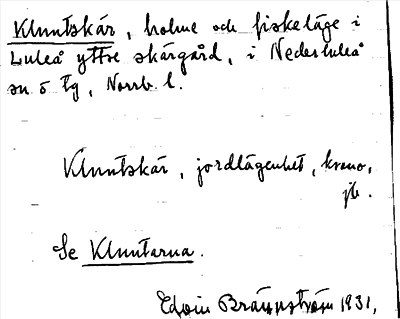 Kluntskär, holme och fiskeläge i
Luleå yttre skärgård, i Nederluleå
sn o tg, Norrb. l.
Kluntskär, jordlägenhet, krono,
jb.
Se Kluntarna.
Edvin Brännström 1931,